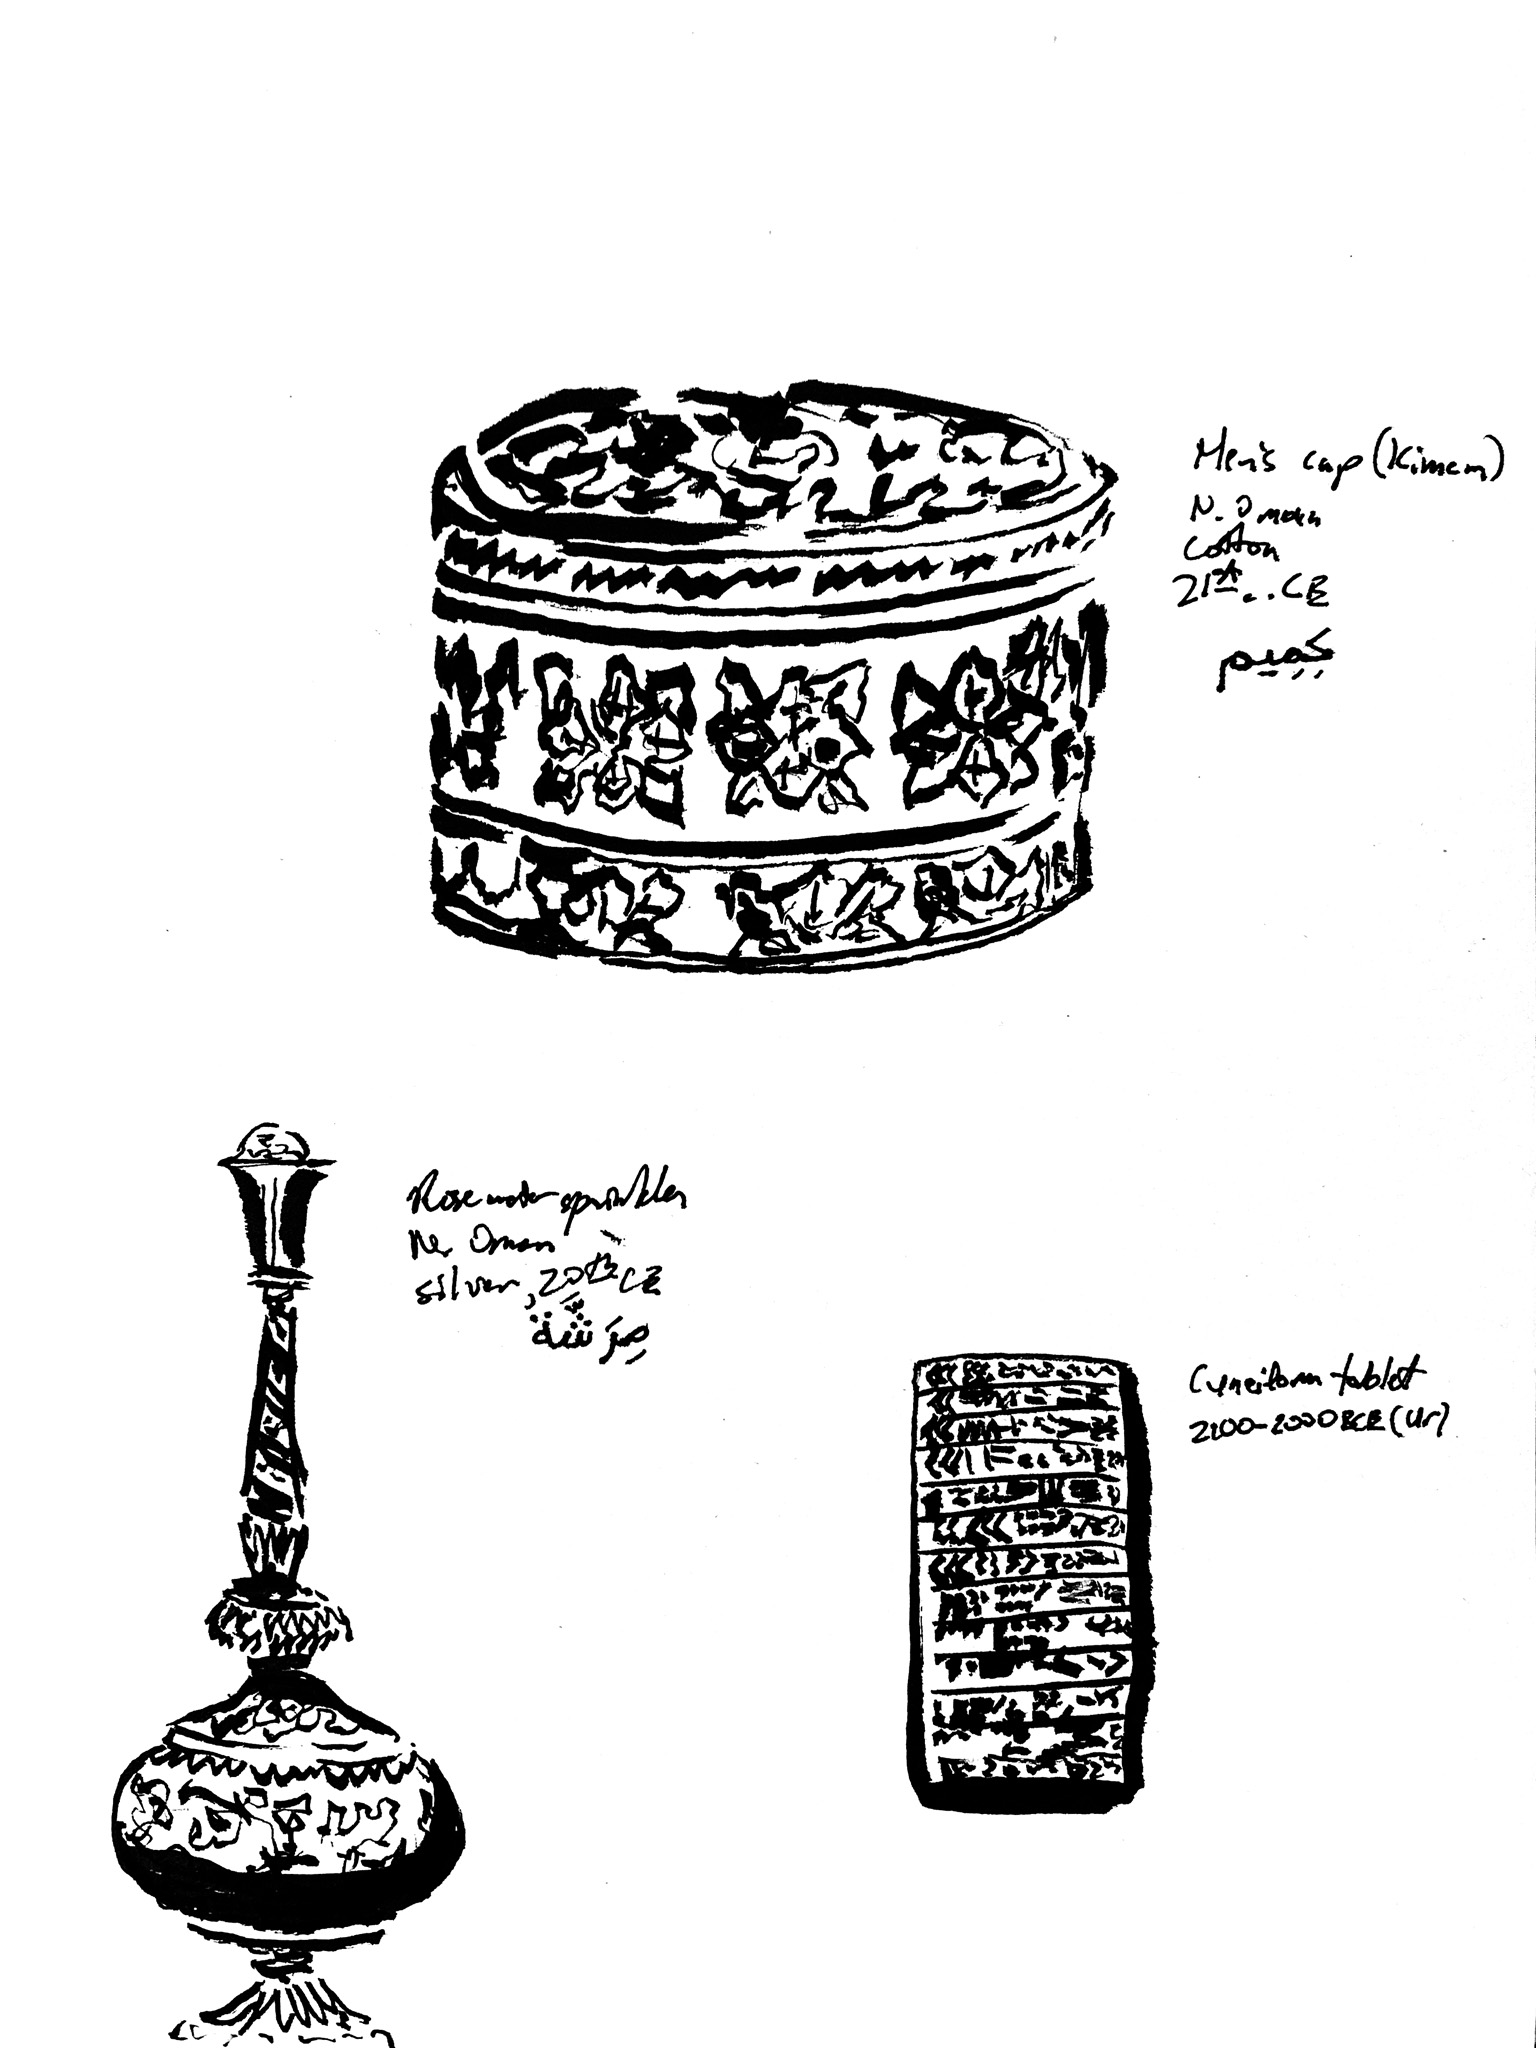 Men's cap (Kimem)
N. Oman
Cotton
21st .. CE
كِمِيم
Rosewater sprinkler
Ne. Oman
silver, 20th CE
مِرَشَّة
Cuneiform tablet
2100-2000 BCE (Ur)